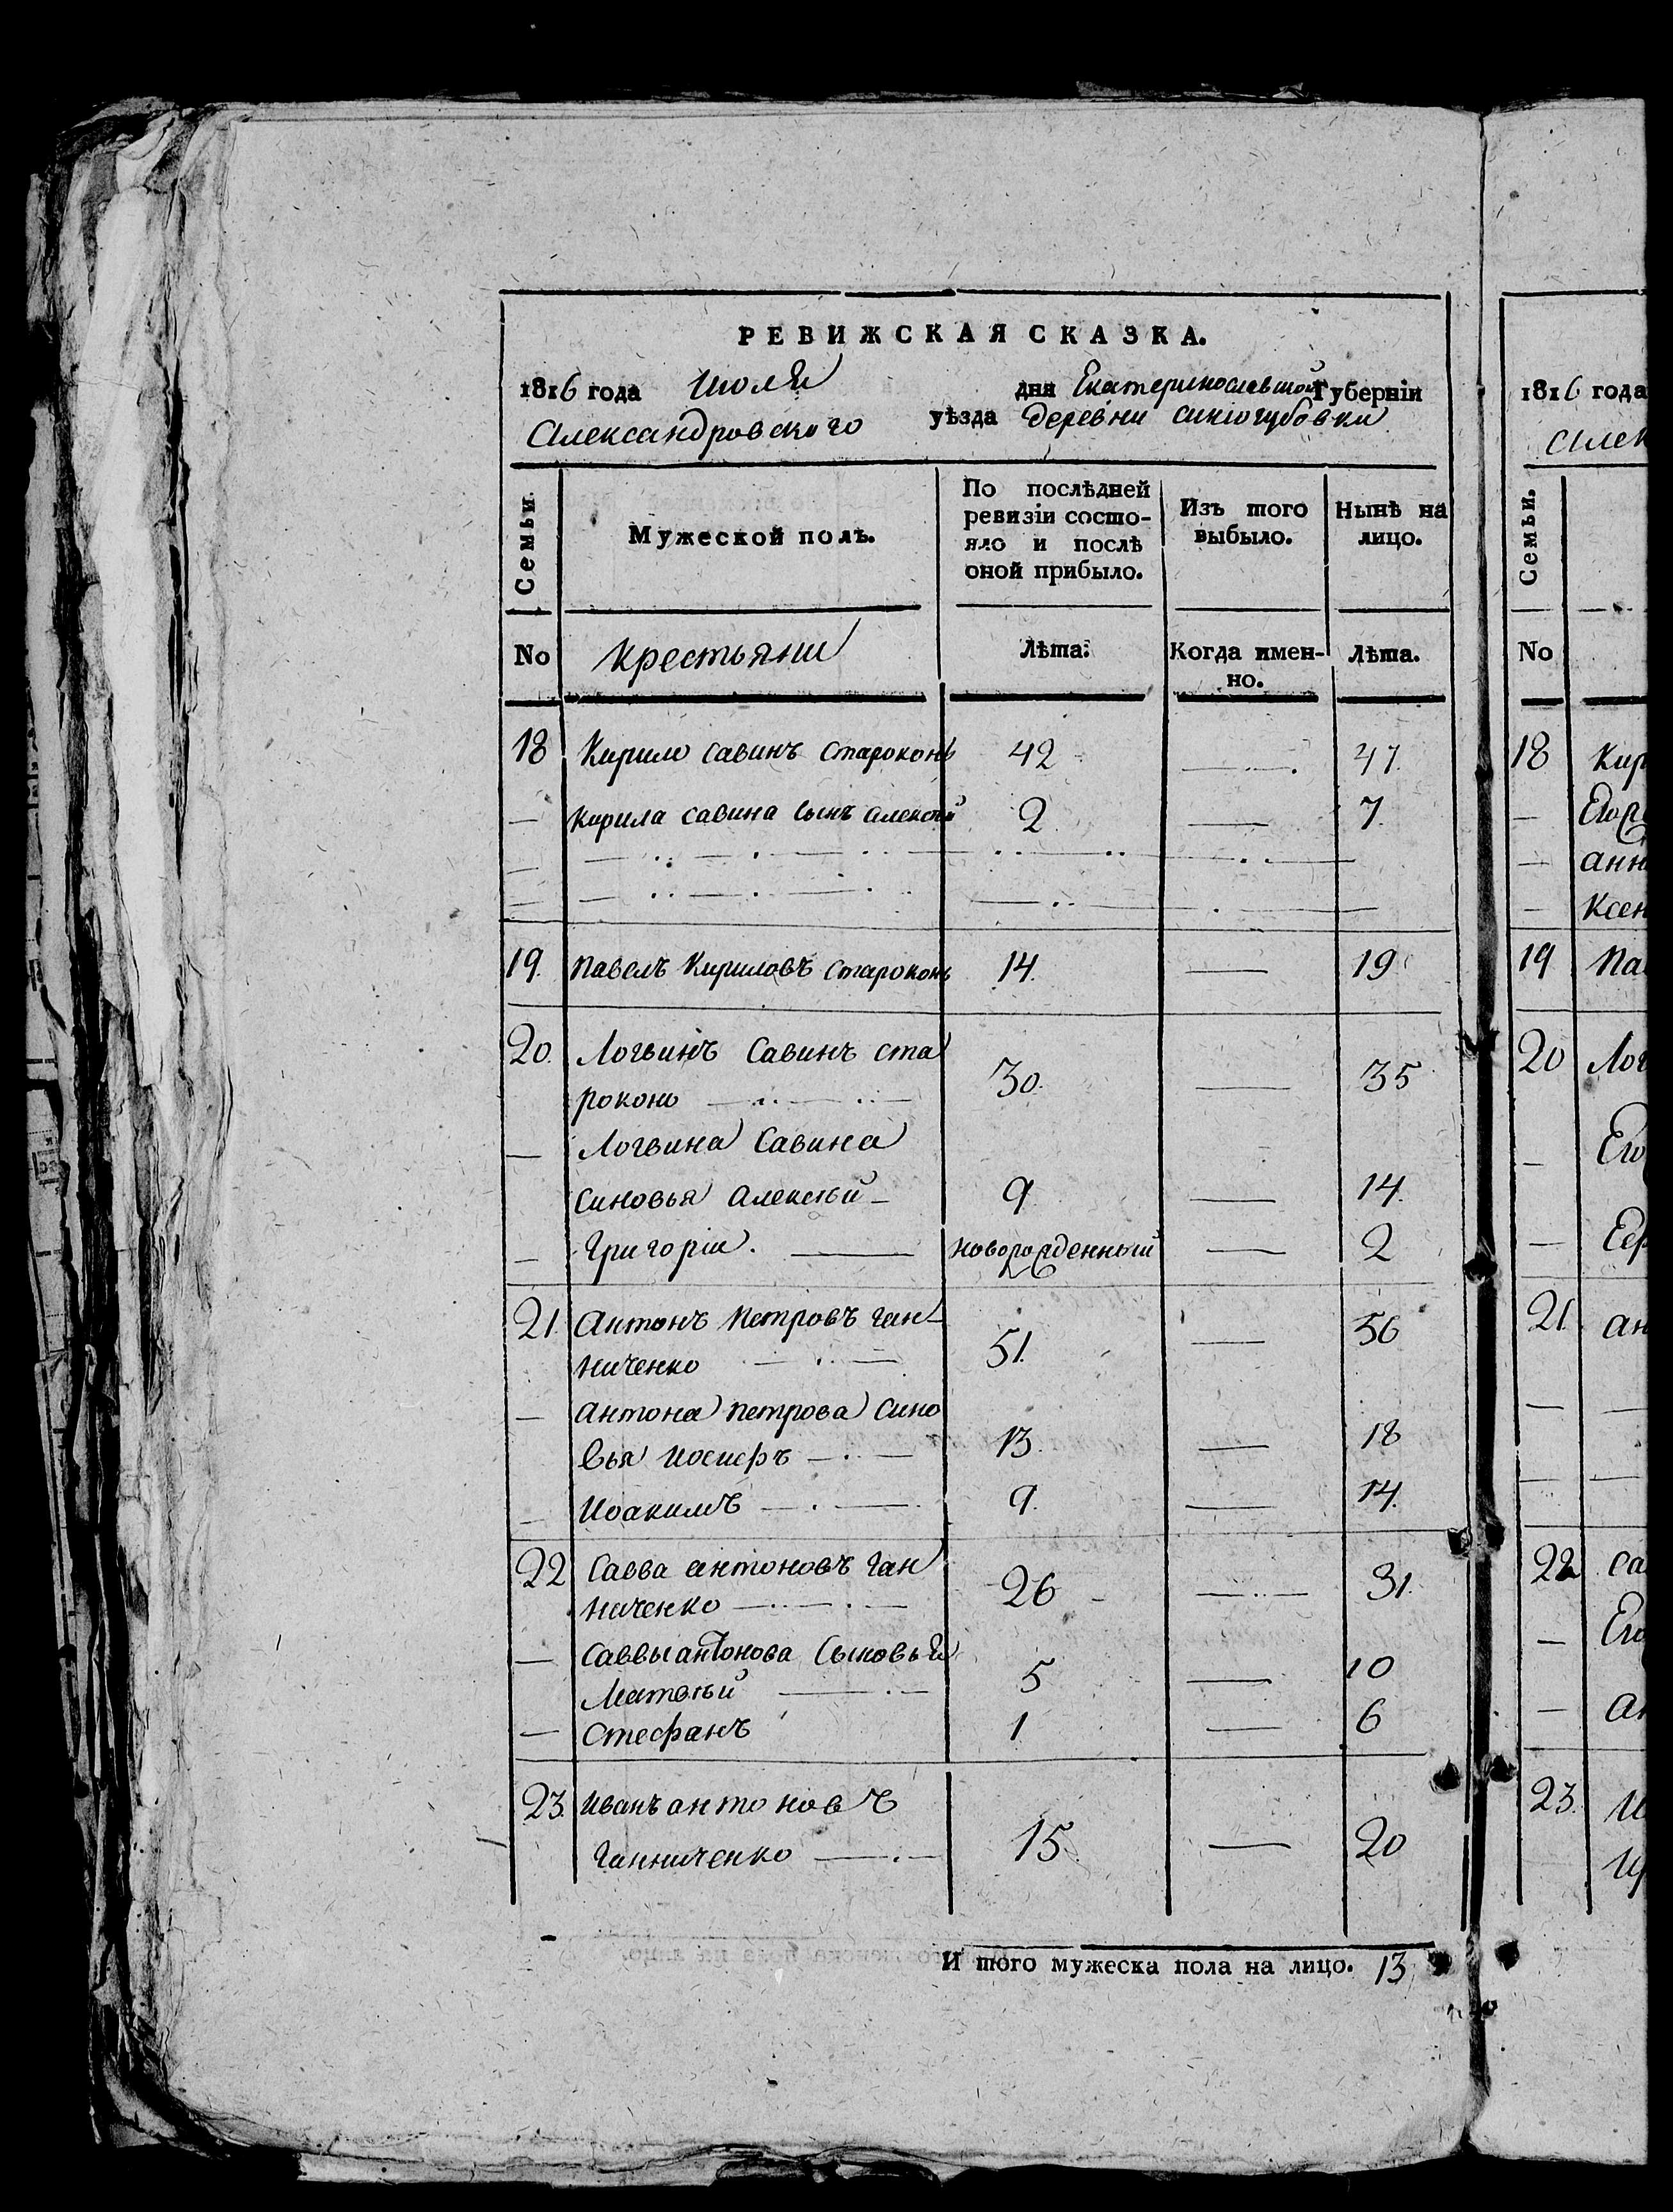 РЕВИЖСКАЯ СКАЗКА.
1816 года Июля дня Екатеринославской Губернiи
Александровского уѣзда деревни Синюгубовки
Семьи. Мужеской полъ. По послѣдней ревизiи состо-яло и послѣ оной прибыло. Изъ того выбыло. Нынѣ на лицо.
No крестьяни Лѣта. Когда имен-но. Лѣта.
18 Кирило Савинъ Староконь 42 — 47.
— Кирила Савина сынъ Алексѣй 2 — 7.
19. Павелъ Кириловъ Староконь 14. — 19
20. Логвинъ Савинъ Ста
роконь 30. — 35
— Логвина Савина
синовья Алексѣй — 9 — 14.
— Григорiи. — новорожденный — 2
21. Антонъ Петровъ Ган-
ниченко 51. — 56
— Антона Петрова сино
вья Иосифъ — 13. — 18
— Иоакимъ — 9. — 14.
22 Савва Антоновъ Ган
ниченко — 26 — 31.
— Саввы Антонова сыновья
Матвѣй — 5 — 10
— Стефанъ 1 — 6
23. Иванъ Антоновъ
Ганниченко — 15. — 20
И того мужеска пола на лицо. 13
1816 года
Алек
Семьи.
No
18 Кир
—
— Анн
— Ксен
19 Па
20 Лог
—
—
21. Ан
22 Са
—
— Ан
23. И